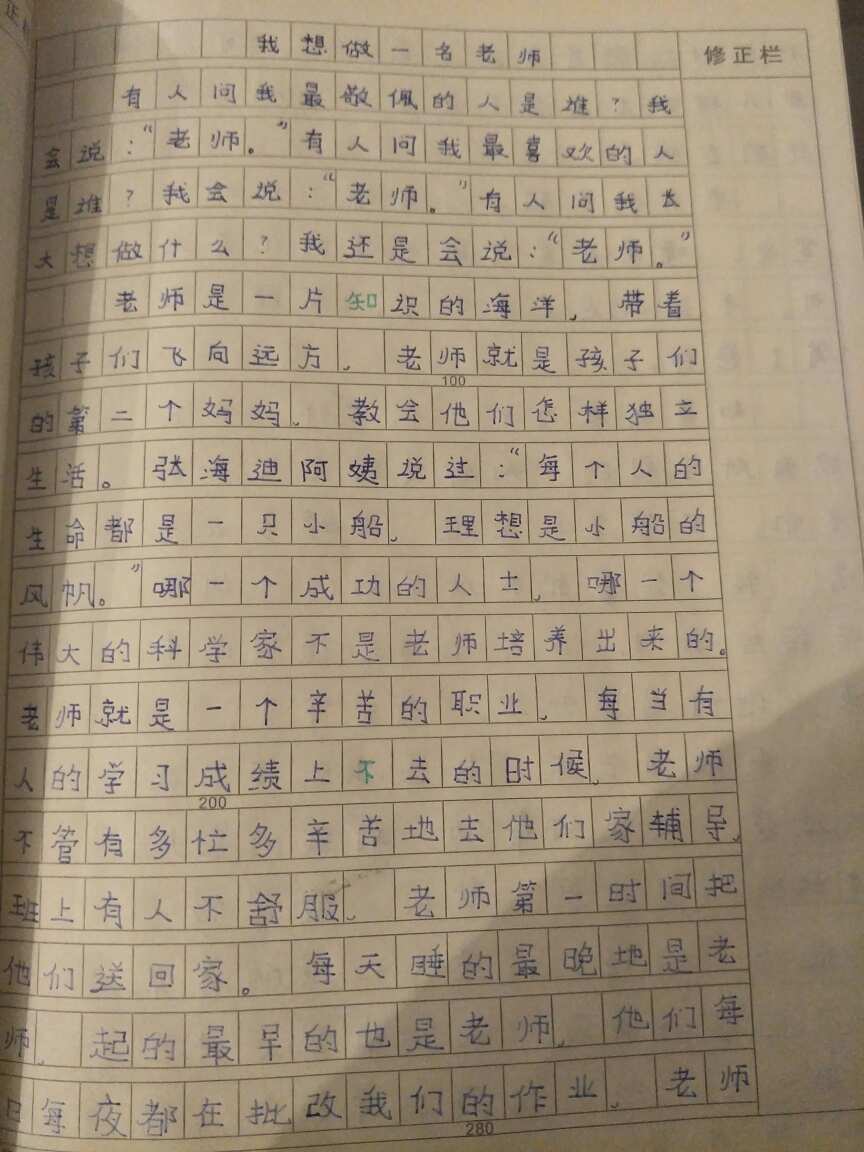 正
我想做一名老师
修正栏
有人问我最敬佩的人是谁？我
会说：“老师。”有人问我最喜欢的人
是谁？我会说：“老师。”有人问我长
大想做什么？我还是会说：“老师。”
老师是一片知识的海洋，带着
孩子们飞向远方，老师就是孩子们
100
的第二个妈妈，教会他们怎样独立
生活。张海迪阿姨说过：“每个人的
生命都是一只小船，理想是小船的
风帆。”哪一个成功的人士，哪一个
伟大的科学家不是老师培养出来的。
老师就是一个辛苦的职业，每当有
人的学习成绩上不去的时候，老师
200
不管有多忙多辛苦地去他们家辅导，
班上有人不舒服，老师第一时间把
他们送回家。每天睡的最晚地是老
师，起的最早的也是老师，他们每
日每夜都在批改我们的作业，老师
280